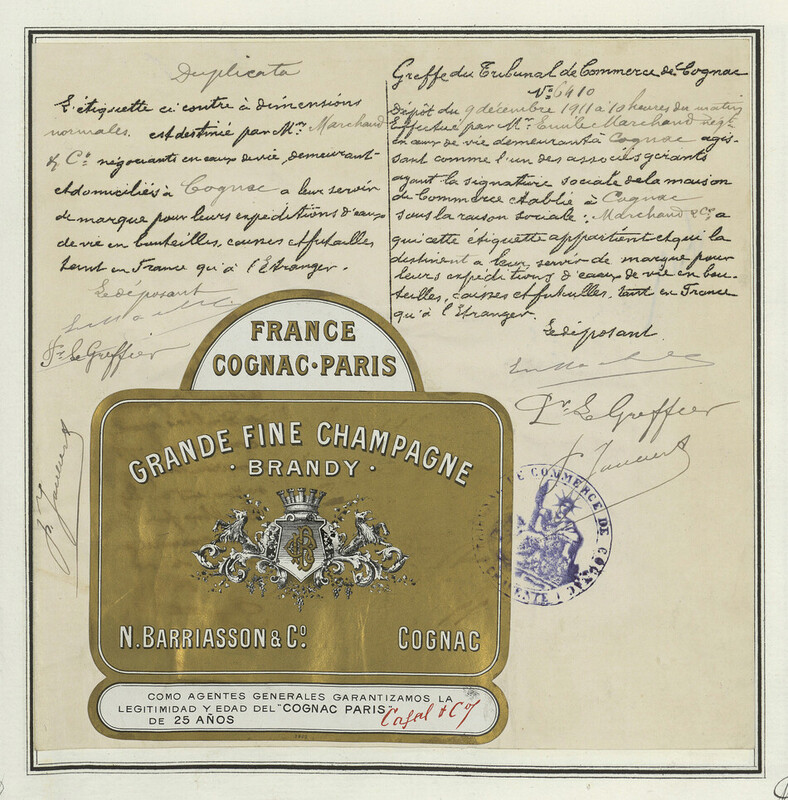 Duplicata
L'étiquette ci contre à dimensions
normales. est destinée par Mrs Marchand
& Co négociants en eaux de vie, demeurant
et domiciliés à Cognac a leur servir
de marque pour leurs expéditions d'eaux
de vie en bouteilles, caisses et futailles
tant en France qu'à l'Etranger.
Le déposant
Le Greffier
Greffe du Tribunal de Commerce de Cognac
No 6410
Dépôt du 9 décembre 1911 à 10 heures du matin
Effectué par Mr. Emile Marchand négt
en eaux de vie demeurant à Cognac agis-
sant comme l'un des associés gérants
ayant la signature sociale de la maison
de Commerce établie à Cognac
sous la raison sociale: Marchand & Co a
qui cette étiquette appartient et qui la
destinent a leur servir de marque pour
leurs expéditions d'eaux de vie en bou-
teilles, caisses et futailles, tant en France
qu'à l'Etranger.
Le déposant
Pr Le Greffier
FRANCE
COGNAC·PARIS
GRANDE FINE CHAMPAGNE
· BRANDY ·
N. BARRIASSON & Co.
COGNAC
COMO AGENTES GENERALES GARANTIZAMOS LA
LEGITIMIDAD Y EDAD DEL "COGNAC PARIS"
DE 25 AÑOS
DE COMMERCE DE COGNAC